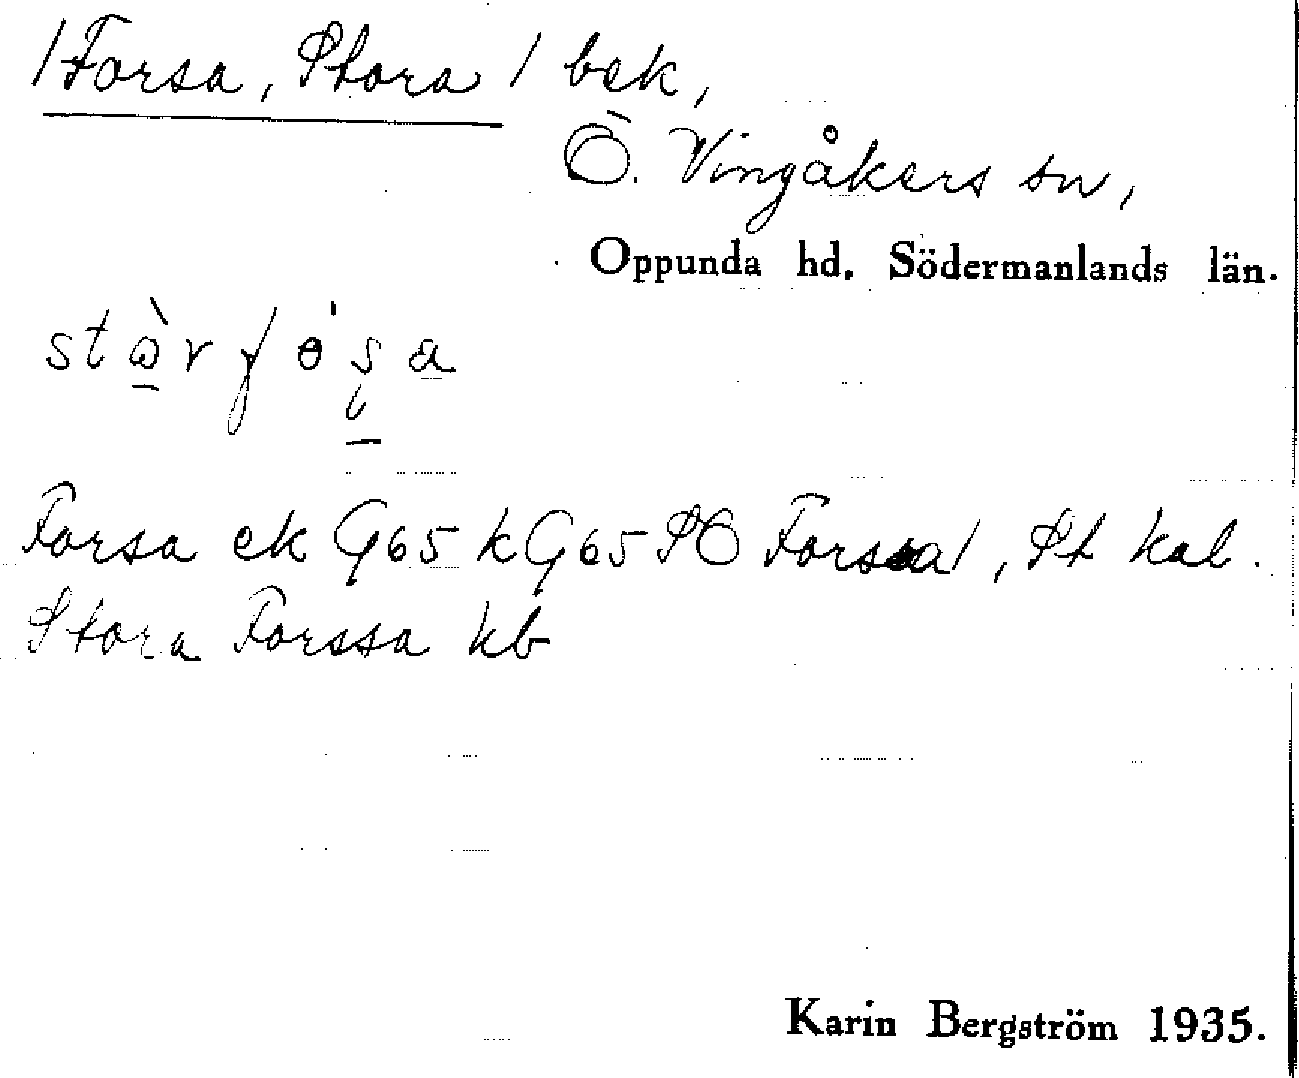 /Forsa, Stora / bek,
Ö. Vingåkers sn,
Oppunda hd. Södermanlands län.
Forsa ek G65 k G65 SO Forssa/, St kal.
Stora Forssa kb
Karin Bergström 1935.